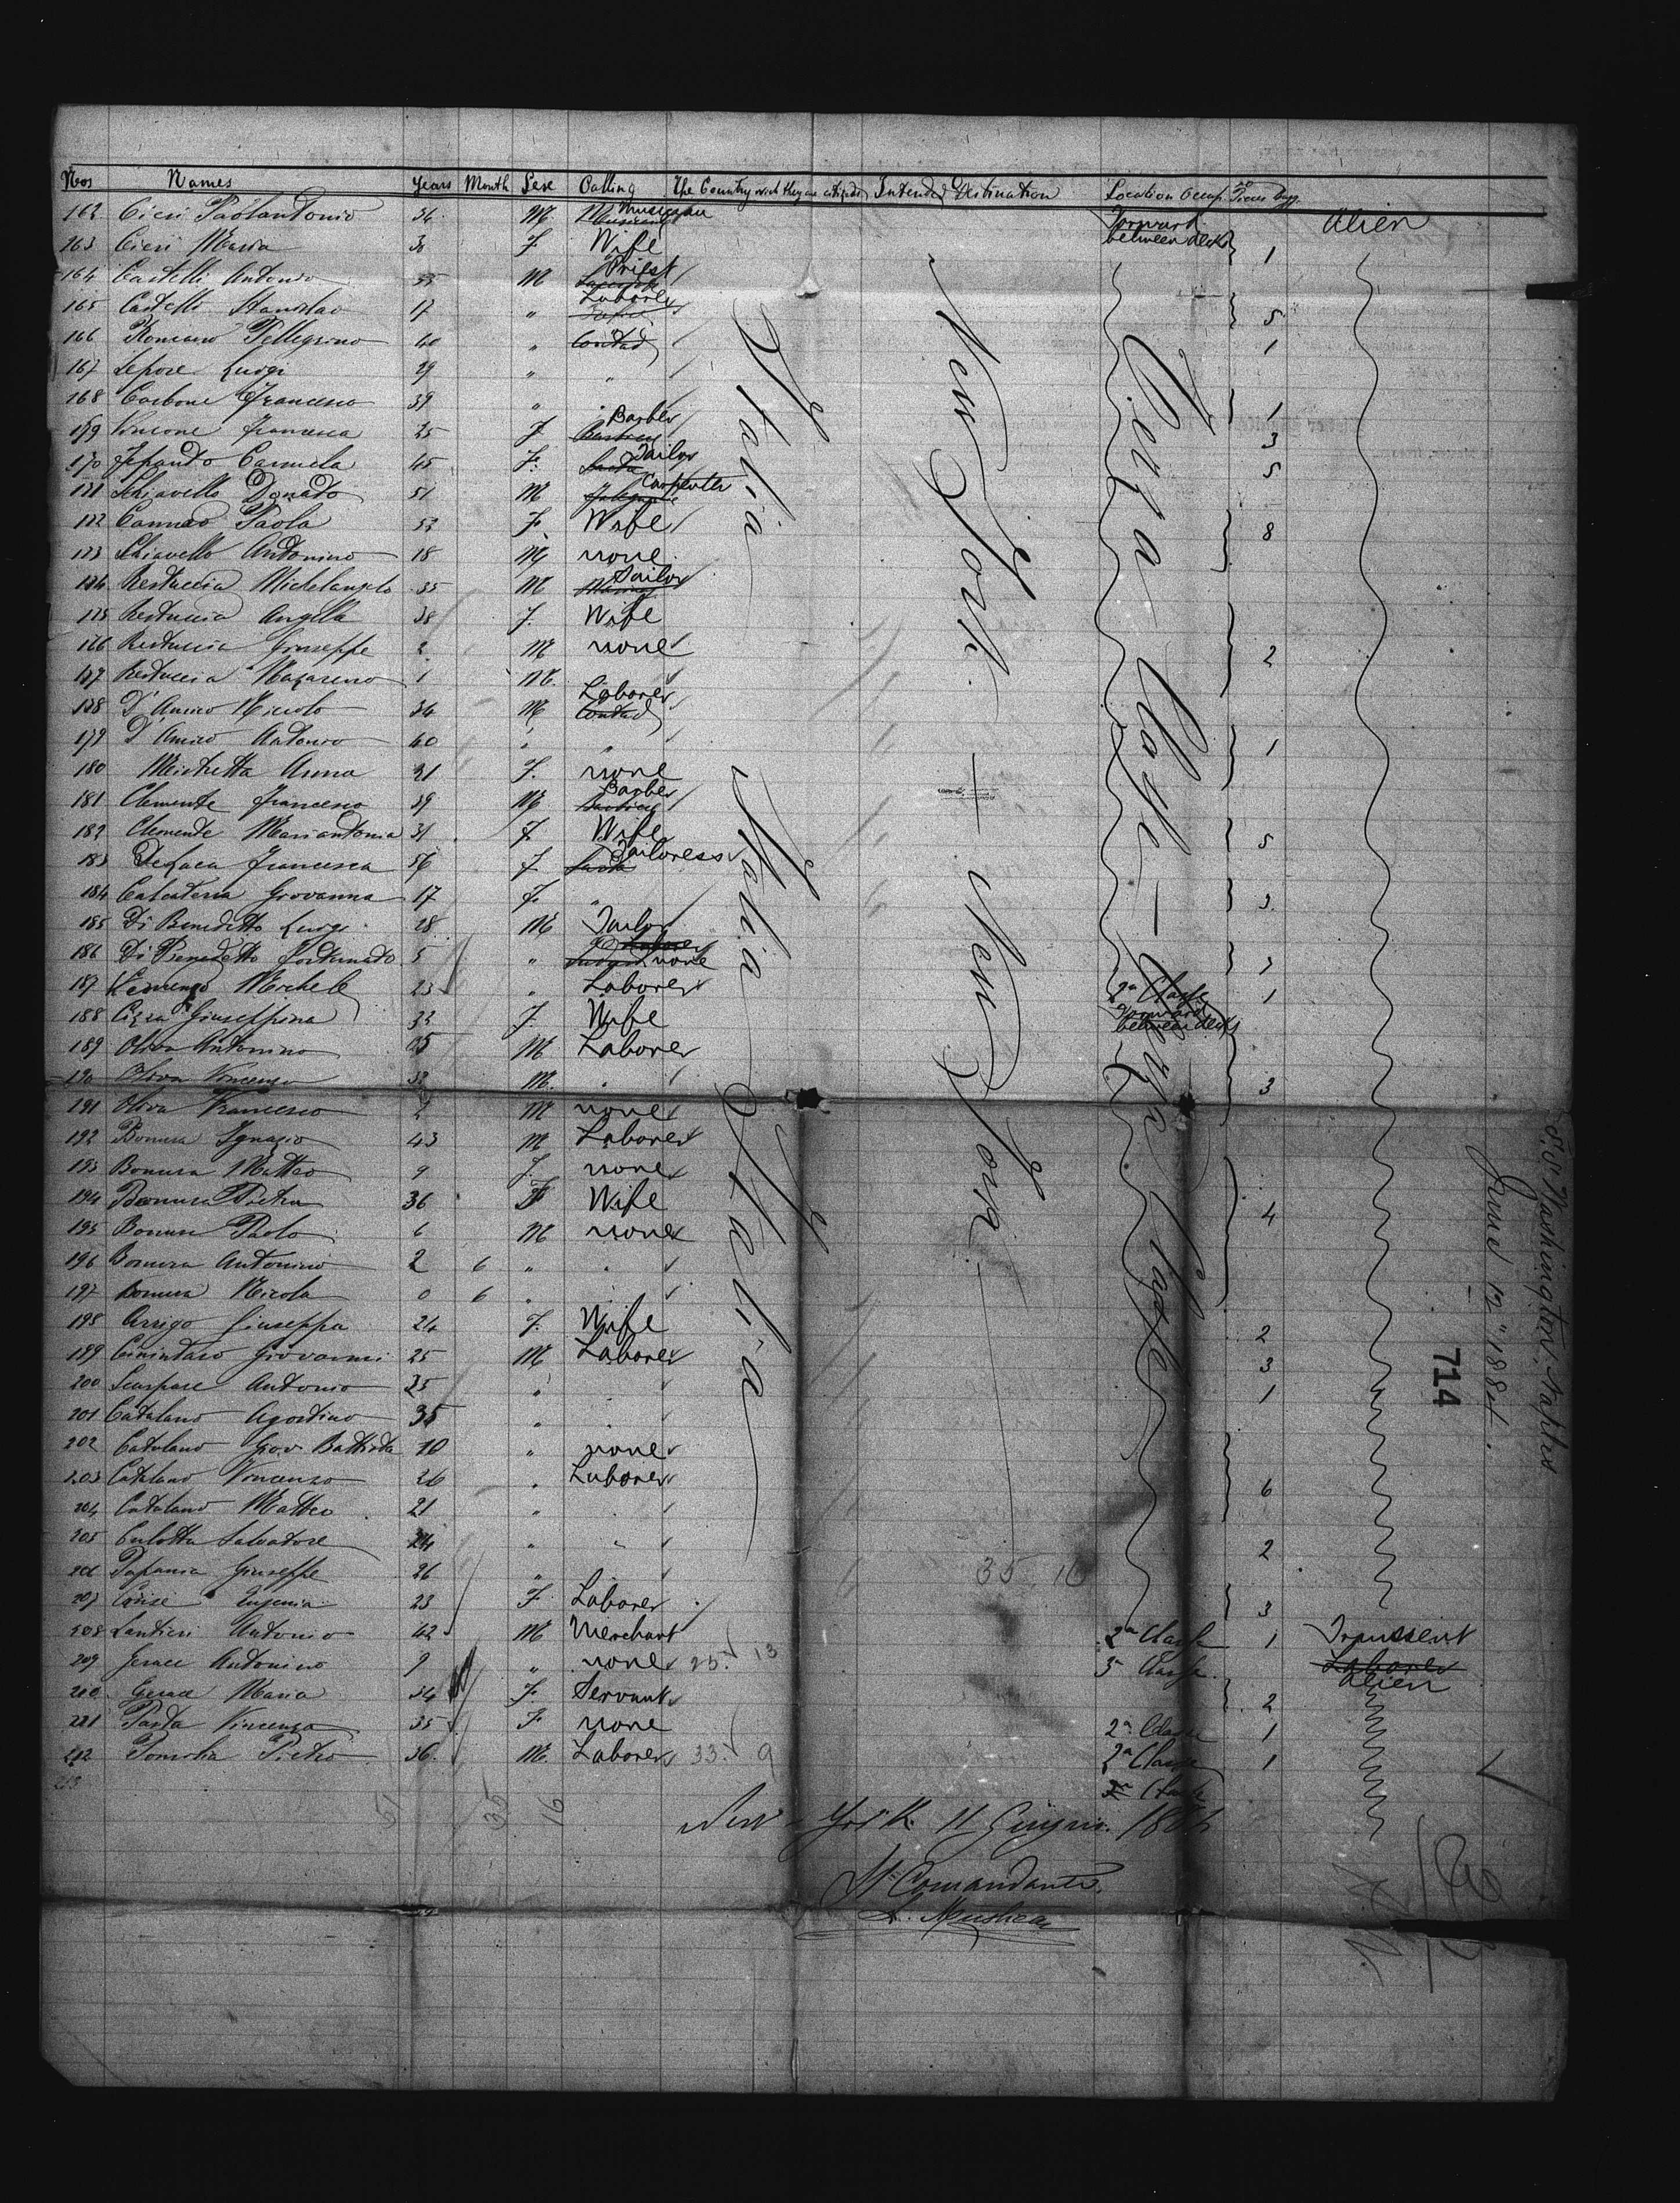 Nos Names Years Month Sexe Calling The Country wich they are citizens Intended Destination Location Occup. Pieces Bagg.
162 Cieri Paolantonio 36 M Musician Forward between decks Alien
163 Cieri Maria 31 F Wife 1
164 Castelli Antonio 35 M Priest
165 Castelli Stanislao 17 " Laborer 5
166 Romano Pellegrino 40 " Contad 1
167 Lepore Luigi 29 " "
168 Carbone Francesco 39 " " 1
179 Vincone Francesca 25 F Barber 3
170 Carmela 45 F. Tailor 5
171 Schiavello Donato 51 M Carpenter
172 Cannao Paola 52 F. Wife 8
173 Schiavello Antonino 18 M none
174 Restuccia Michelangelo 35 M Sailor
175 Restuccia Angella 38 F. Wife
176 Restuccia Giuseppe 2 M none 2
177 Restuccia Nazareno 1 M.
178 D'Amico Niccolo 34 M Laborer Contad
179 D'Amico Antonio 60 " " 1
180 Mistretta Anna 21 F. none
181 Clemente Francesco 39 M Barber
182 Clemente Mariantonia 31 F. Wife 5
183 DeLuca Francesca 56 F Tailoress
184 Calcaterra Giovanna 17 F. " 3
185 Di Benedetto Luigi 28 M Tailor
186 Di Benedetto Fortunato 5 " none
187 Michele 23 " Laborer 2a Classe 1
188 Giuseppina 32 F. Wife Forward between decks
189 Oliva Antonino 35 M Laborer
190 Oliva Vincenzo 32 M. " 3
191 Oliva Francesco 2 M none
192 Bonura Ignazio 43 M Laborer
193 Bonura Matteo 9 F. none
194 Bonura Pietra 36 F Wife 4
195 Bonura Paolo 6 M none
196 Bonura Antonino 2 6 " "
197 Bonura Nicola 0 6 "
198 Arrigo Giuseppa 24 F. Wife 2
199 Giovanni 25 M Laborer 3
200 Antonio 25 " 1
201 Catalano Agostino 35 "
202 Catalano Giov. Battista 10 " none
203 Catalano Vincenzo 26 " Laborer 6
204 Catalano Matteo 21 "
205 Culotta Salvatore 24 " " 2
206 Papania Giuseppe 26 "
207 Eugenia 23 F. Laborer 3
208 Lantieri Antonio 42 M Merchant 2a Classe 1 Transient
209 Gerace Antonino 9 " none 25. 13 3 Classe Laborer
210 Gerace Maria 34 F. Servant 2 Alien
211 Pasta Vincenza 35 F none 2a Classe 1
212 Pietro 36. M. Laborer 33. 9 2a Classe 1
213 Classe
Italia
Italia
Italia
New York.
New York
Terza Classe
Terza Classe
35 16
51 35 16
New-York 11 Giugno 1884
Il Comandante
S/S Washington, Naples
June 12" 1884.
714